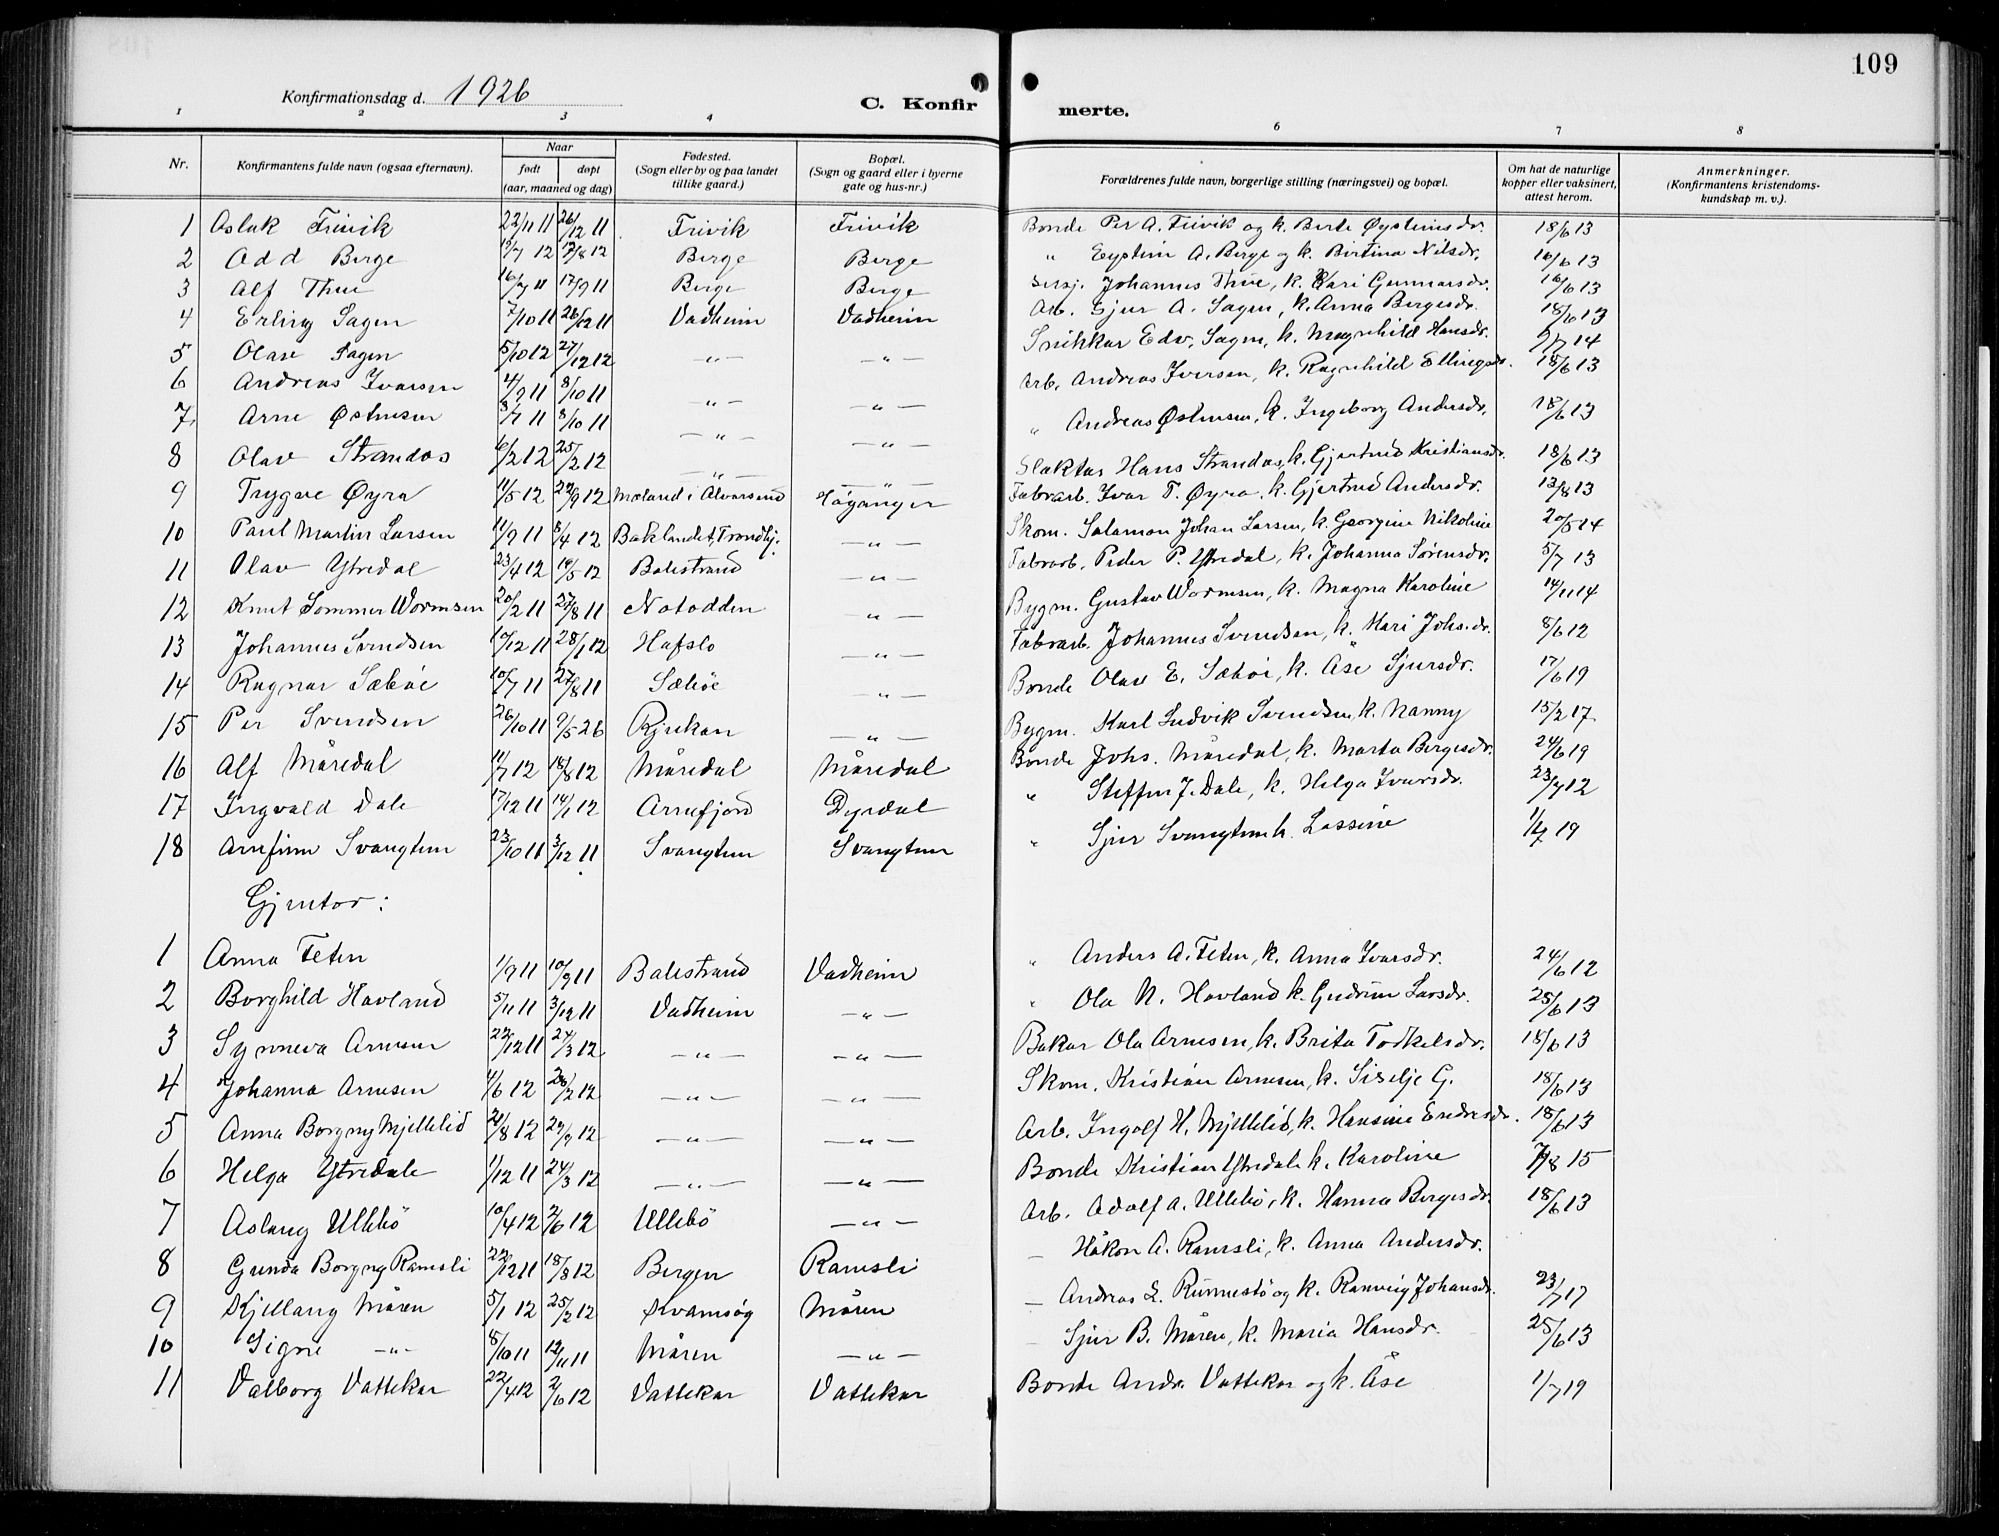 109
Konfirmationsdag d. 1926
C. Konfirmerte.
1 2 3 4 6 7 8
Nr. Konfirmantens fulde navn (ogsaa efternavn). Naar født døpt (aar, maaned og dag) Fødested. (Sogn eller by og paa landet tillike gaard.) Bopæl. (Sogn og gaard eller i byerne gate og hus-nr.) Forældrenes fulde navn, borgerlige stilling (næringsvei) og bopæl. Om hat de naturlige kopper eller vaksinert, attest herom. Anmerkninger. (Konfirmantens kristendomskundskap m. v.).
1 Aslak Frivik 22/11 11 26/12 11 Frivik Frivik Bonde Per A. Frivik og k. Berte Øysteinsdr. 18/6 13
2 Odd Berge 12 8 12 Berge Berge " Eystein A. Berge og k. Birtina Nilsdr. 16/6 13
3 Alf Thue 16/7 11 17/9 11 Berge Berge Johannes Thue, k. Kari Gunnarsdr. 16/6 13
4 Erling Sagen 7/10 11 26/12 11 Vadheim Vadheim Arb. Sjur A. Sagen, k. Anna Bergesdr. 18/6 13
5 Olav Sagen 5/10 12 27/12 12 —"— —"— Snikkar Edv. Sagen, k. Magnhild Hansdr. 9/7 14
6 Andreas Ivarsen 4/9 11 8/10 11 —"— —"— Arb. Andreas Iversen, k. Ragnhild Ellingsdr. 18/6 13
7 Arne Østensen 3/7 11 8/10 11 —"— —"— " Andreas Østensen, k. Ingeborg Andersdr. 18/6 13
8 Olav Strandos 6/2 12 25/2 12 —"— —"— Slaktar Hans Strandos, k. Gjertrud Kristiansdr. 18/6 13
9 Trygve Øyra 11/5 12 22/9 12 Mæland i Alvarsund Høganger Fabrarb. Ivar T. Øyra, k. Gjertrud Andersdr. 13/8 13
10 Paul Martin Larsen 11/9 11 8/4 12 Baklandet, Trondhj. —"— Skom. Salamon Johan Larsen, k. Georgine Nikoline 20/5 14
11 Olav Ytredal 23/4 12 16/5 12 Balestrand —"— Fabrarb. Peder P. Ytredal, k. Johanna Sørensdr. 5/7 13
12 Knut Sommer Wormsen 20/2 11 27/8 11 Notodden —"— Bygm. Gustav Wormsen, k. Magna Karoline 14/11 14
13 Johannes Svendsen 10/12 11 28/1 12 Hafslo —"— Fabrarb. Johannes Svendsen, k. Kari Johs.dr. 8/6 12
14 Ragnar Sæbøe 10/7 11 27/8 11 Sæbøe —"— Bonde Olav E. Sæbøe, k. Åse Sjursdr. 17/6 19
15 Per Svendsen 26/10 11 9/5 26 Rjukan —"— Bygm. Karl Ludvik Svendsen, k. Nanny 15/2 17.
16 Alf Måredal 11/7 12 18/8 12 Måredal Måredal Bonde Johs. Måredal, k. Marta Bergesdr. 24/6 19
17 Ingvald Dale 17/12 11 14/1 12 Arnefjord Dyrdal " Steffen J. Dale, k. Helga Ivarsdr. 23/7 12
18 Arnfinn Svangtun 23/10 11 3/12 11 Svangtun Svangtun " Sjur Svangtun k. Lassine 1/7 19
Gjentor:
1 Anna Feten 1/9 11 10/9 11 Balestrand Vadheim " Anders A. Feten, k. Anna Ivarsdr. 24/6 12
2 Borghild Hovland 5/11 11 3/12 11 Vadheim —"— " Ola N. Hovland k. Gudrun Larsdr. 25/6 13
3 Synneva Arnesen 22/12 11 24/3 12 —"— —"— Bakar Ola Arnesen, k. Brita Torkelsdr. 18/6 13
4 Johanna Arnesen 4/6 12 28/2 12 —"— —"— Skom. Kristian Arnesen, k. Siselje G. 18/6 13
5 Anna Borgny Mjellelid 20/8 12 22/9 12 —"— —"— Arb. Ingolf H. Mjellelid, k. Hansine Endresdr. 18/6 13
6 Helga Ytredale 1/12 11 24/3 12 —"— —"— Bonde Kristian Ytredale k. Karoline 7/8 15
7 Aslaug Ullebø 10/4 12 2/6 12 Ullebø —"— Arb. Adolf A. Ullebø, k. Hanna Bergesdr. 18/6 13
8 Gunda Borgny Ramsli 22/12 11 18/8 12 Bergen Ramsli — Håkon A. Ramsli, k. Anna Andersdr.
9 Kjellaug Måren 5/1 12 25/2 12 Kvamsøy Måren — Andreas L. Runnestø og k. Ranveig Johansdr. 23/7 17
10 Signe —"— 8/10 11 12/11 11 Måren —"— — Sjur B. Måren, k. Maria Hansdr. 25/6 13
11 Valborg Vattekar 22/4 12 2/6 12 Vattekar Vattekar Bonde Andr. Vattekar og k. Åse 1/7 19